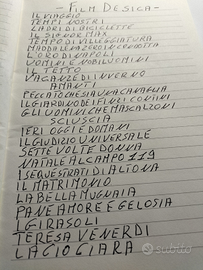 - FILM DE SICA -
IL VIAGGIO
TEMPI NOSTRI
LADRI DI BICICLETTE
IL SIGNOR MAX
TEMPO DI VILLEGGIATURA
MADDALENA ZERO IN CONDOTTA
L'ORO DI NAPOLI
UOMINI E NOBILUOMINI
IL TETTO
VACANZE D'INVERNO
AMANTI
PECCATO CHE SIA UNA CANAGLIA
IL GIARDINO DEI FINZI CONTINI
GLI UOMINI CHE MASCALZONI
SCIUSCIA
IERI OGGI E DOMANI
IL GIUDIZIO UNIVERSALE
SETTE VOLTE DONNA
NATALE AL CAMPO 119
I SEQUESTRATI DI ALTONA
IL MATRIMONIO
LA BELLA MUGNAIA
PANE AMORE E GELOSIA
I GIRASOLI
TERESA VENERDI
LA CIOCIARA
subito